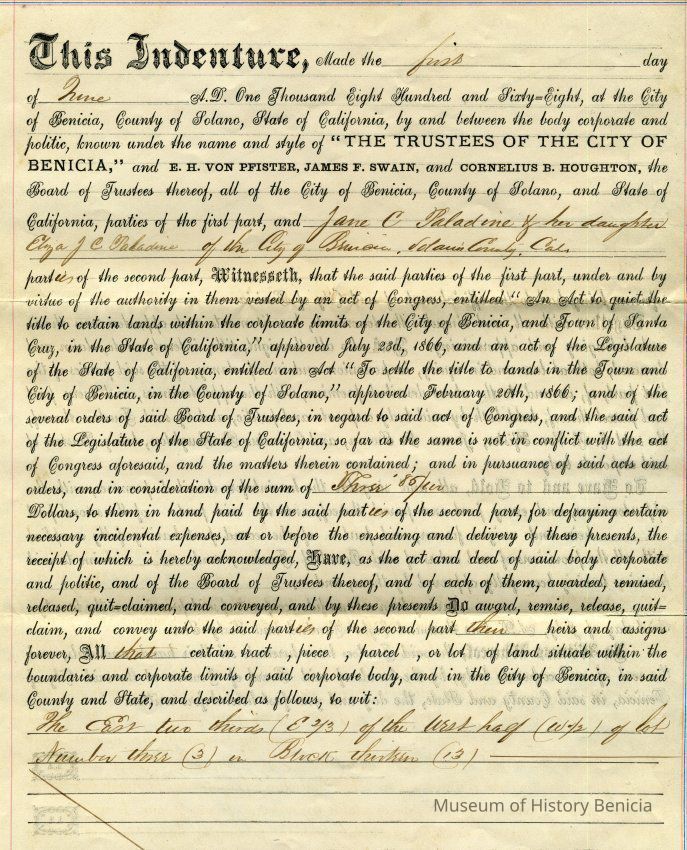 This Indenture, Made the first day
of June A.D. One Thousand Eight Hundred and Sixty=Eight, at the City
of Benicia, County of Solano, State of California, by and between the body corporate and
politic, known under the name and style of "THE TRUSTEES OF THE CITY OF
BENICIA," and E. H. VON PFISTER, JAMES F. SWAIN, and CORNELIUS B. HOUGHTON, the
Board of Trustees thereof, all of the City of Benicia, County of Solano, and State of
California, parties of the first part, and Jane C Paladine & her daughter
Eliza J C Paladine of the City of Benicia, Solano County, Cal.
parties of the second part, Witnesseth, that the said parties of the first part, under and by
virtue of the authority in them vested by an act of Congress, entitled "An Act to quiet the
title to certain lands within the corporate limits of the City of Benicia, and Town of Santa
Cruz, in the State of California," approved July 23d, 1866, and an act of the Legislature
of the State of California, entitled an Act "To settle the title to lands in the Town and
City of Benicia, in the County of Solano," approved February 20th, 1866; and of the
several orders of said Board of Trustees, in regard to said act of Congress, and the said act
of the Legislature of the State of California, so far as the same is not in conflict with the act
of Congress aforesaid, and the matters therein contained; and in pursuance of said acts and
orders, and in consideration of the sum of Three 85/100
Dollars, to them in hand paid by the said parties of the second part, for defraying certain
necessary incidental expenses, at or before the ensealing and delivery of these presents, the
receipt of which is hereby acknowledged, Have, as the act and deed of said body corporate
and politic, and of the Board of Trustees thereof, and of each of them, awarded, remised,
released, quit=claimed, and conveyed, and by these presents Do award, remise, release, quit=
claim, and convey unto the said parties of the second part their heirs and assigns
forever, All that certain tract , piece , parcel , or lot , of land situate within the
boundaries and corporate limits of said corporate body, and in the City of Benicia, in said
County and State, and described as follows, to wit:
The East two thirds (E 2/3) of the West half (W 1/2) of lot
Number three (3) in Block thirteen (13)
Museum of History Benicia